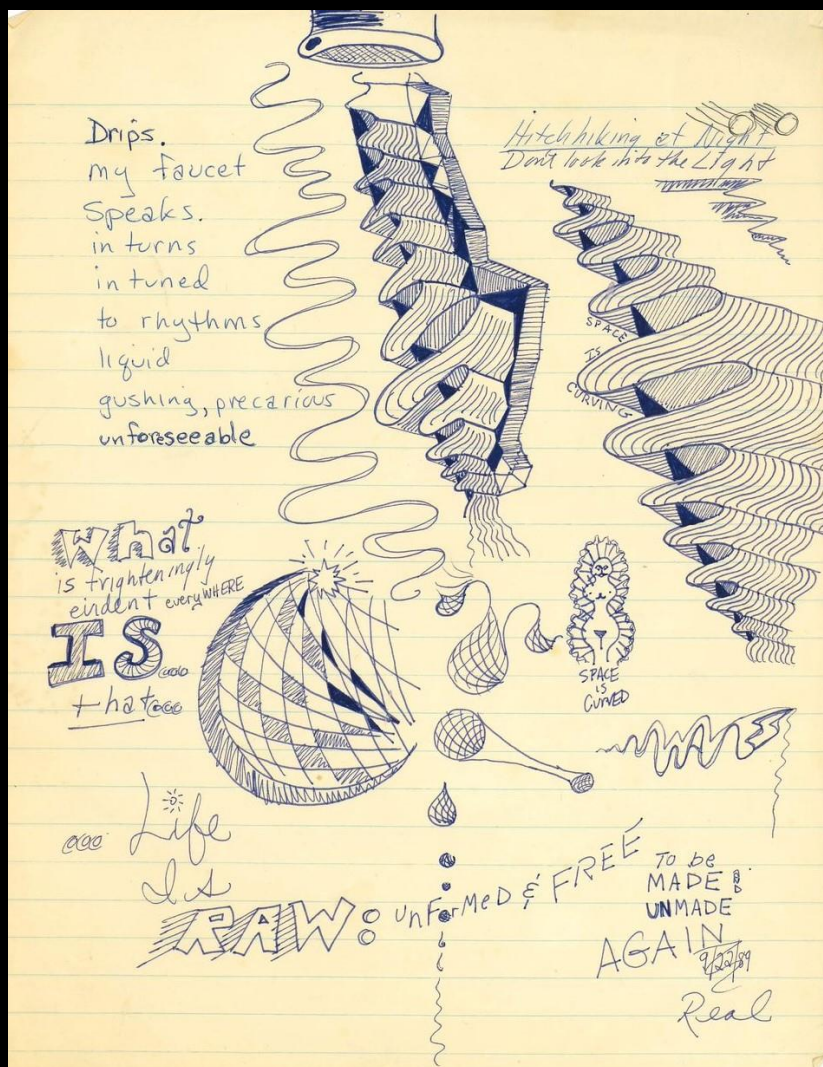 Drips.
my faucet
Speaks.
in turns
in tuned
to rhythms
liquid
gushing, precarious
unforeseeable
Hitchhiking at Night
Don't look into the Light
SPACE
IS
CURVING
What
is frighteningly
evident everyWHERE
IS
that
SPACE
IS
CURVED
Life
Is
RAW: UnForMeD & FREE
To be
MADE
UNMADE
AGAIN
9/22/89
Real